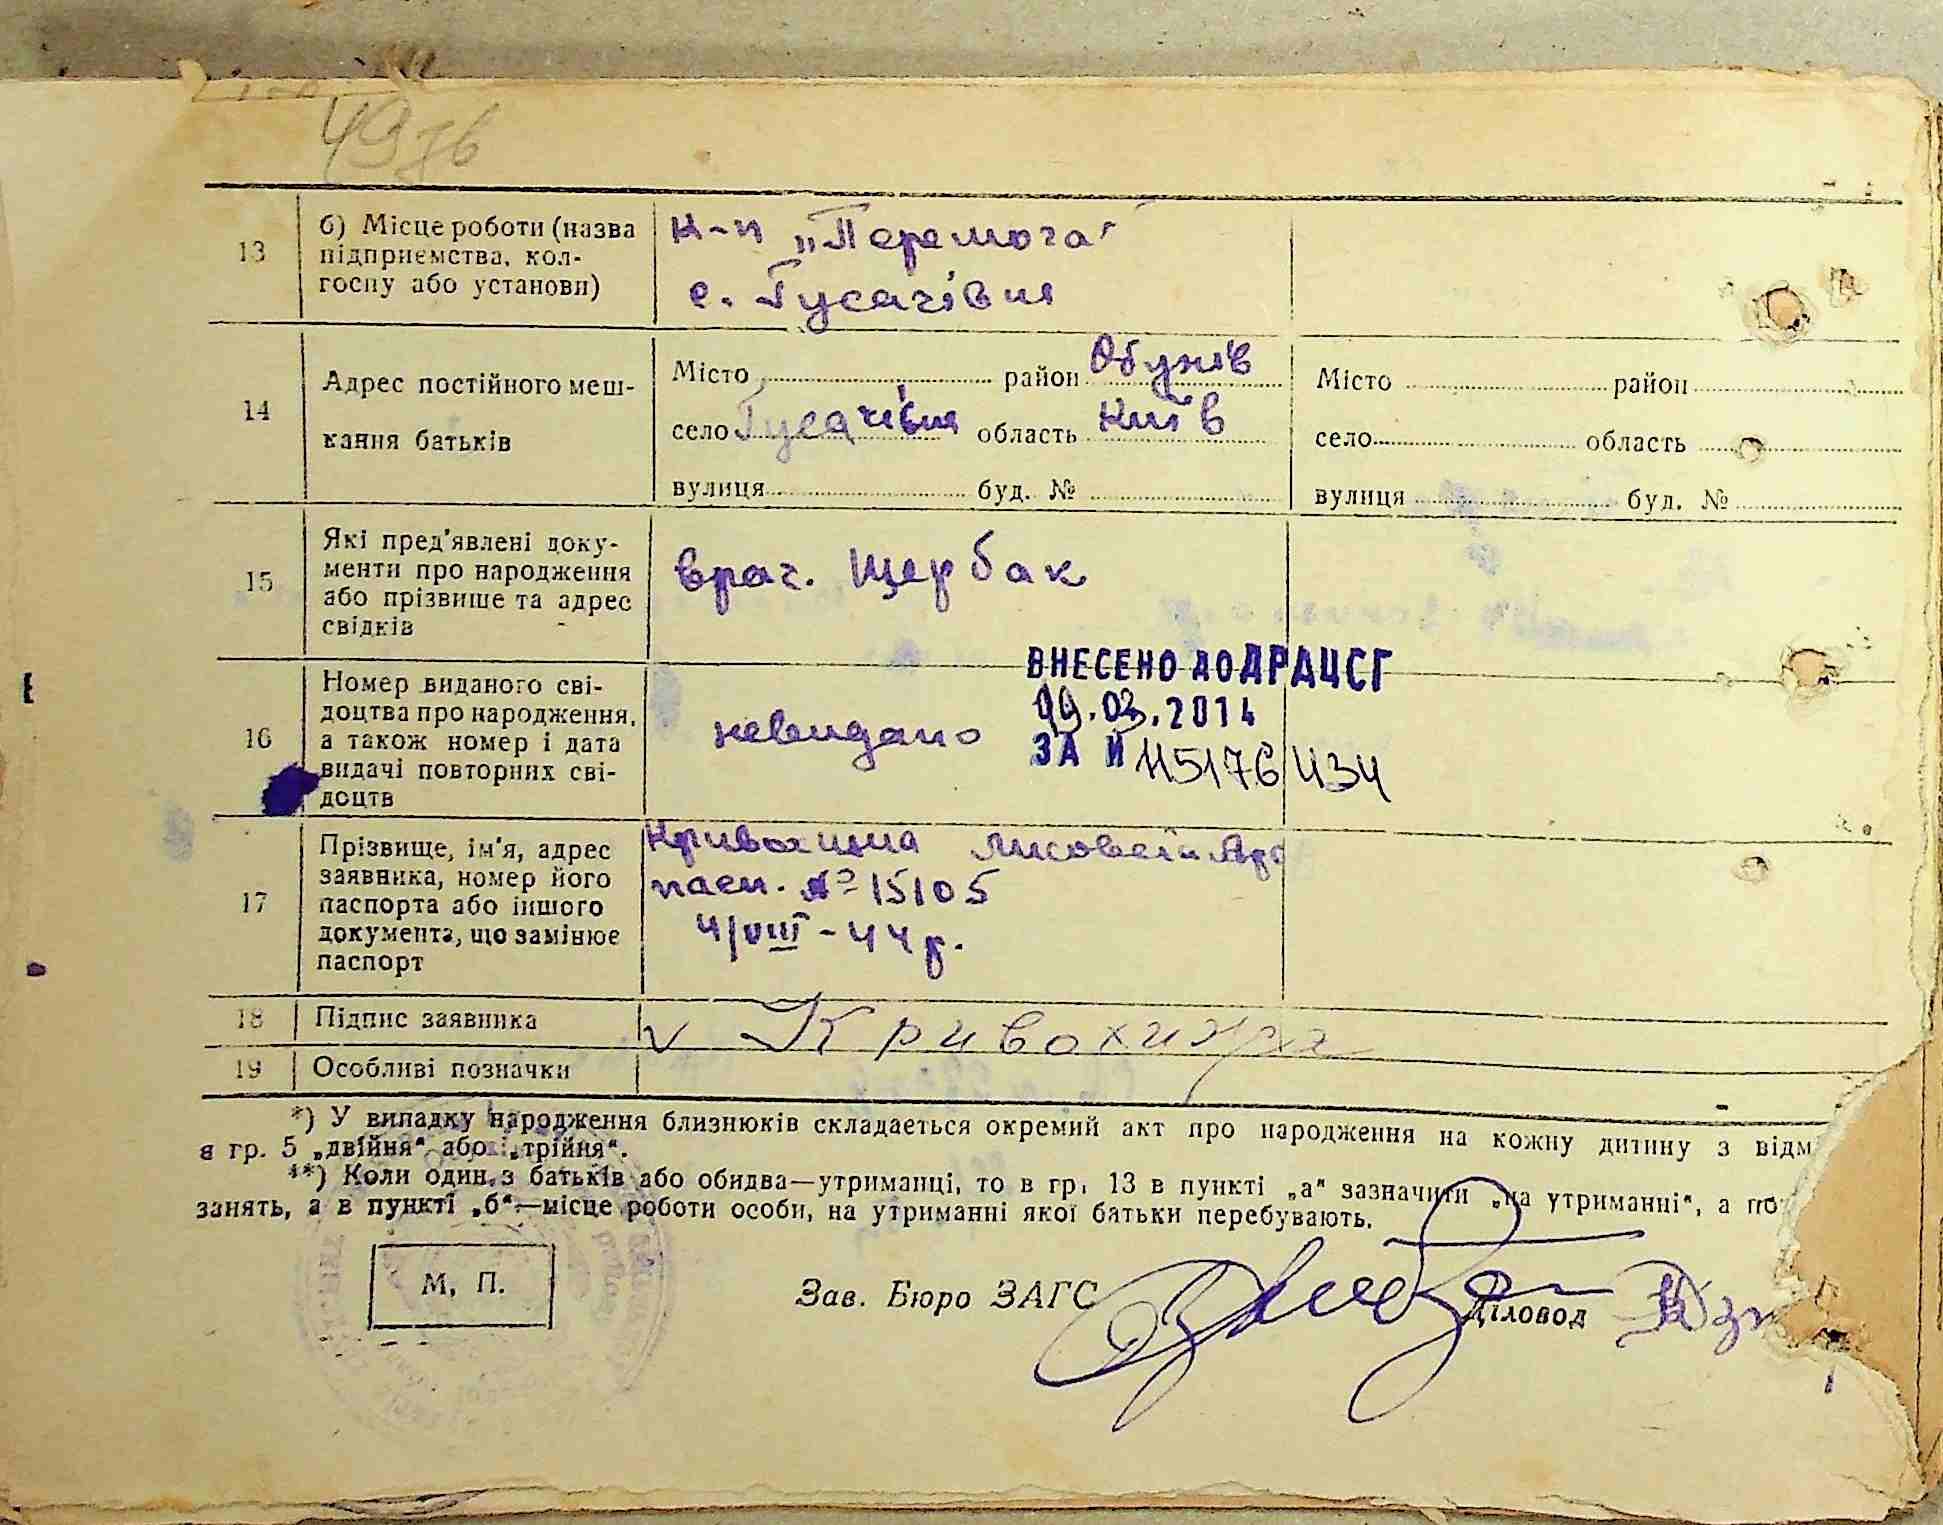 49зв
13 б) Місце роботи (назва к-п „Перемога“
підприємства, кол-
госпу або установи) с. Гусачівка
14 Адрес постійного меш- Місто район Обухів Місто район
кання батьків село Гусачівка область Київ село область
вулиця буд. № вулиця буд. №
15 Які пред'явлені доку-
менти про народження врач. Щербак
або прізвище та адрес
свідків
ВНЕСЕНО ДО ДРАЦСГ
16 Номер виданого сві-
доцтва про народження, 03.2014
а також номер і дата невидано ЗА №
видачі повторних сві-
доцтв
17 Прізвище, ім'я, адрес
заявника, номер його № 15105
паспорта або іншого
документа, що замінює 4/VIII-44р.
паспорт
18 Підпис заявника v Кривохижа
19 Особливі позначки
*) У випадку народження близнюків складаеться окремий акт про народження на кожну дитину з відм
в гр. 5 „двійня“ або „трійня“.
**) Коли один з батьків або обидва—утриманці, то в гр. 13 в пункті „а“ зазначити „на утриманні“, а по
занять, а в пункті „б“—місце роботи особи, на утриманні якої батьки перебувають.
М. П.
Зав. Бюро ЗАГС Діловод